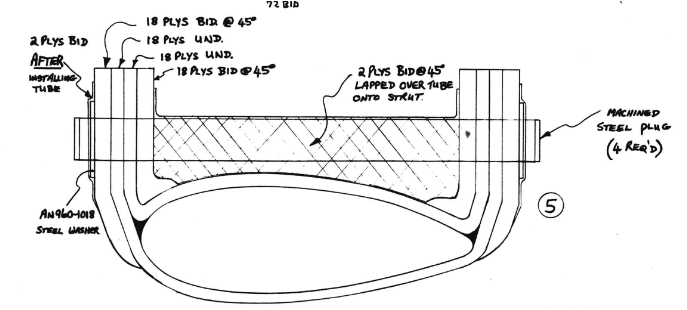 72 BID
18 PLYS BID @ 45°
18 PLYS UND.
18 PLYS UND.
18 PLYS BID @ 45°
2 PLYS BID
AFTER
INSTALLING
TUBE
2 PLYS BID @ 45°
LAPPED OVER TUBE
ONTO STRUT.
MACHINED
STEEL PLUG
(4 REQ'D)
AN960-1018
STEEL WASHER
5